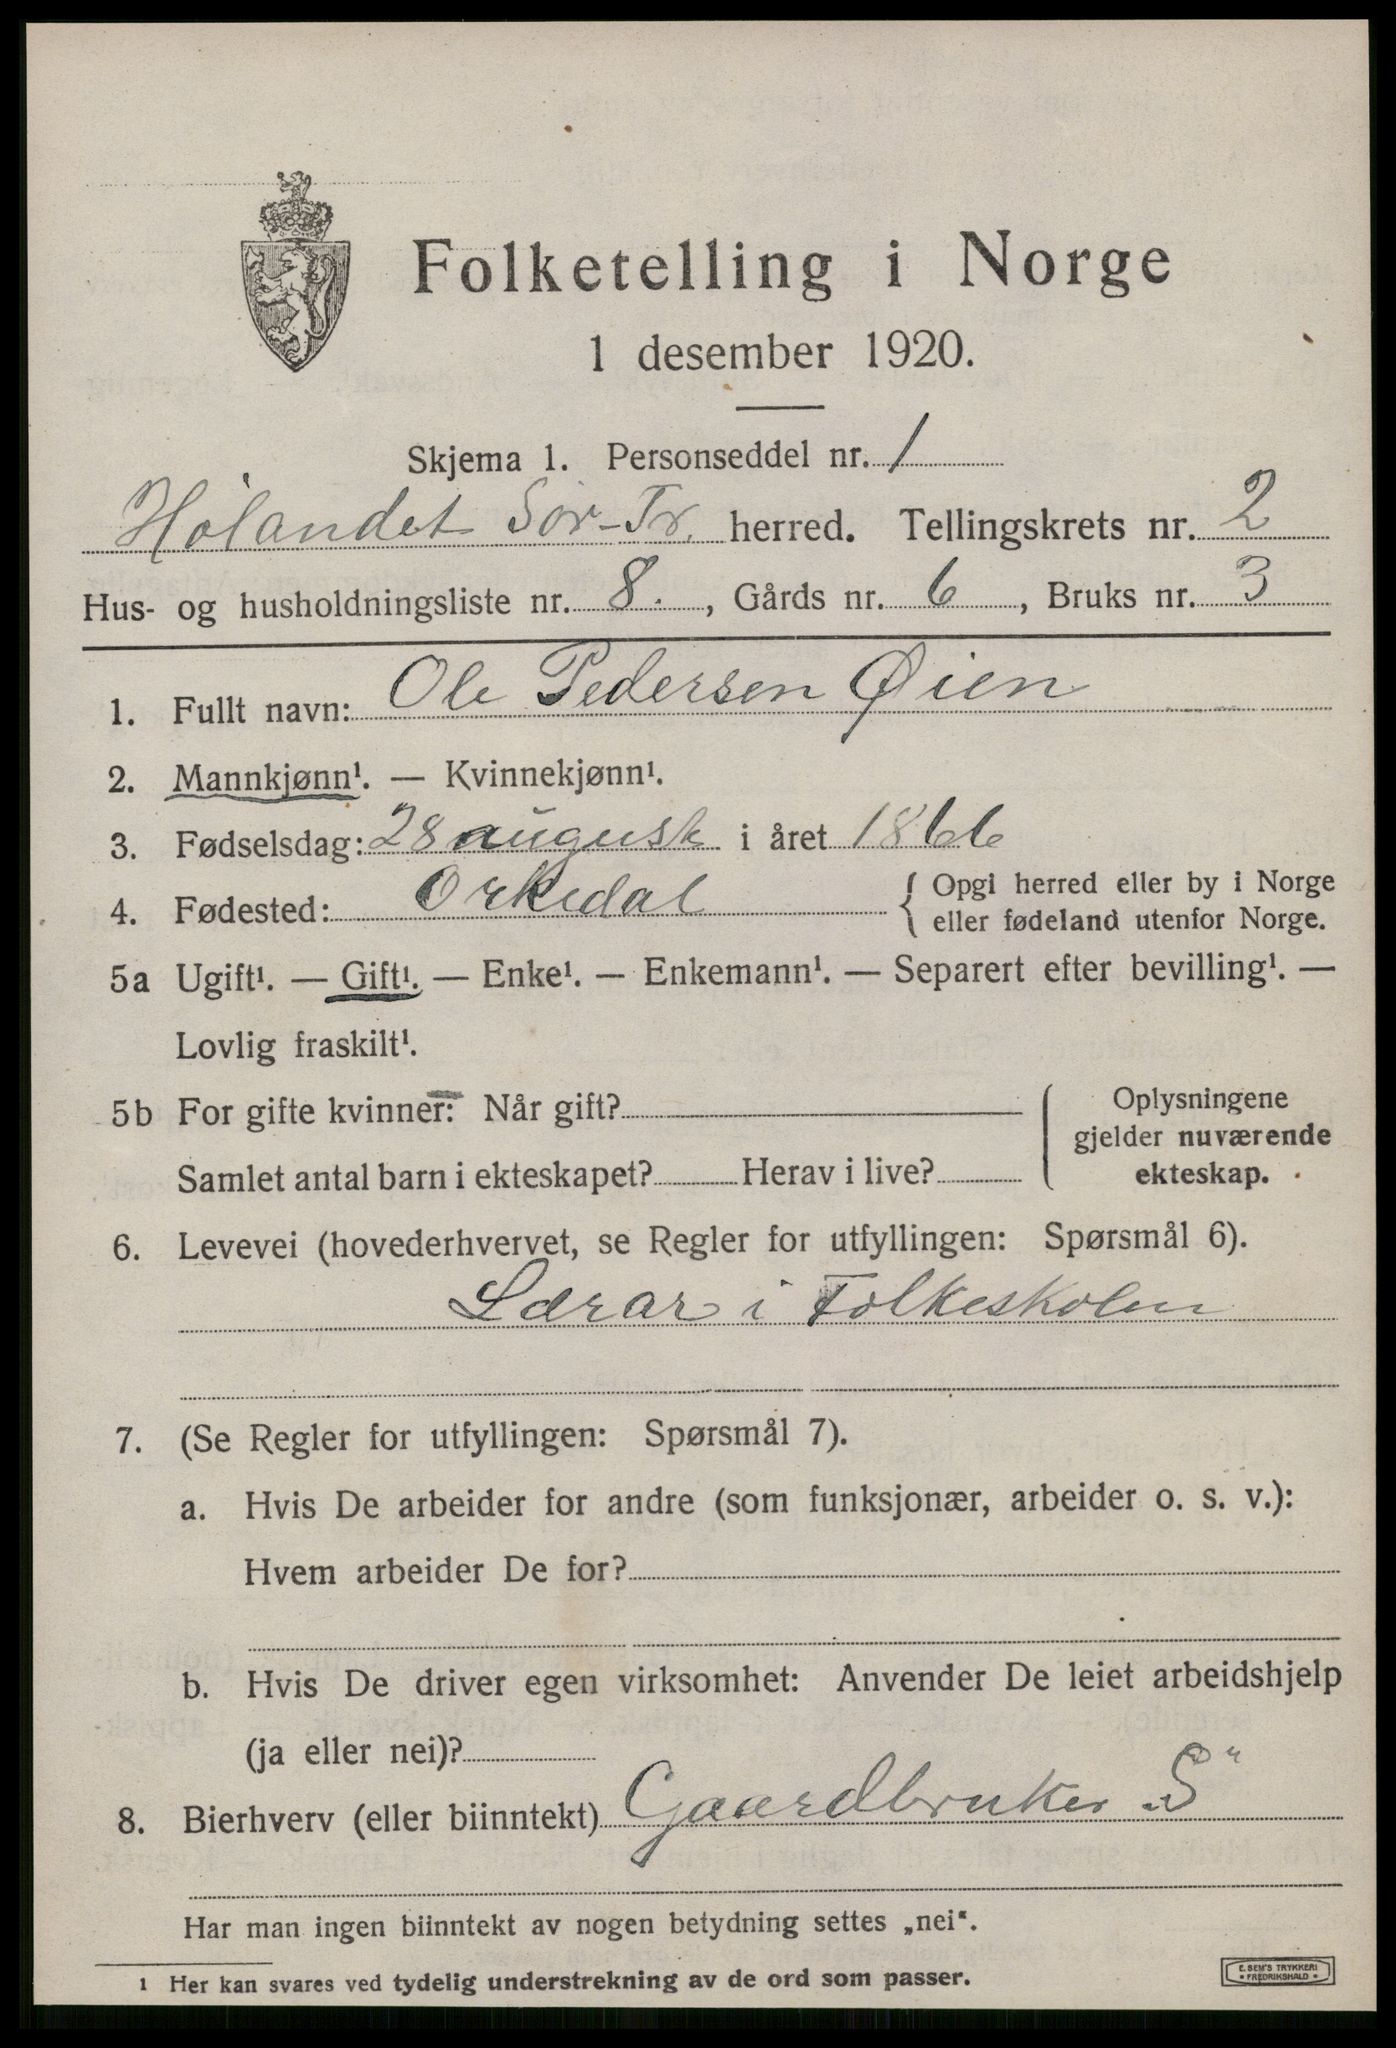 Folketelling i Norge
1 desember 1920.
Skjema 1. Personseddel nr. 1
Hølandet Sør-Tr. herred. Tellingskrets nr. 2
Hus- og husholdningsliste nr. 8., Gårds nr. 6, Bruks nr. 3
1. Fullt navn: Ole Pedersen Øien
2. Mannkjønn¹. — Kvinnekjønn¹.
3. Fødselsdag: 28 august i året 1866
4. Fødested: Orkedal { Opgi herred eller by i Norge
eller fødeland utenfor Norge.
5a Ugift¹. — Gift¹. — Enke¹. — Enkemann¹. — Separert efter bevilling¹. —
Lovlig fraskilt¹.
5b For gifte kvinner: Når gift?
Samlet antal barn i ekteskapet? Herav i live?
Oplysningene
gjelder nuværende
ekteskap.
6. Levevei (hovederhvervet, se Regler for utfyllingen: Spørsmål 6).
Lærar i Folkeskolen
7. (Se Regler for utfyllingen: Spørsmål 7).
a. Hvis De arbeider for andre (som funksjonær, arbeider o. s. v.):
Hvem arbeider De for?
b. Hvis De driver egen virksomhet: Anvender De leiet arbeidshjelp
(ja eller nei)?
8. Bierhverv (eller biinntekt) Gaardbruker „S"
Har man ingen biinntekt av nogen betydning settes „nei".
1 Her kan svares ved tydelig understrekning av de ord som passer.
E. SEM'S TRYKKERI
* FREDRIKSHALD *